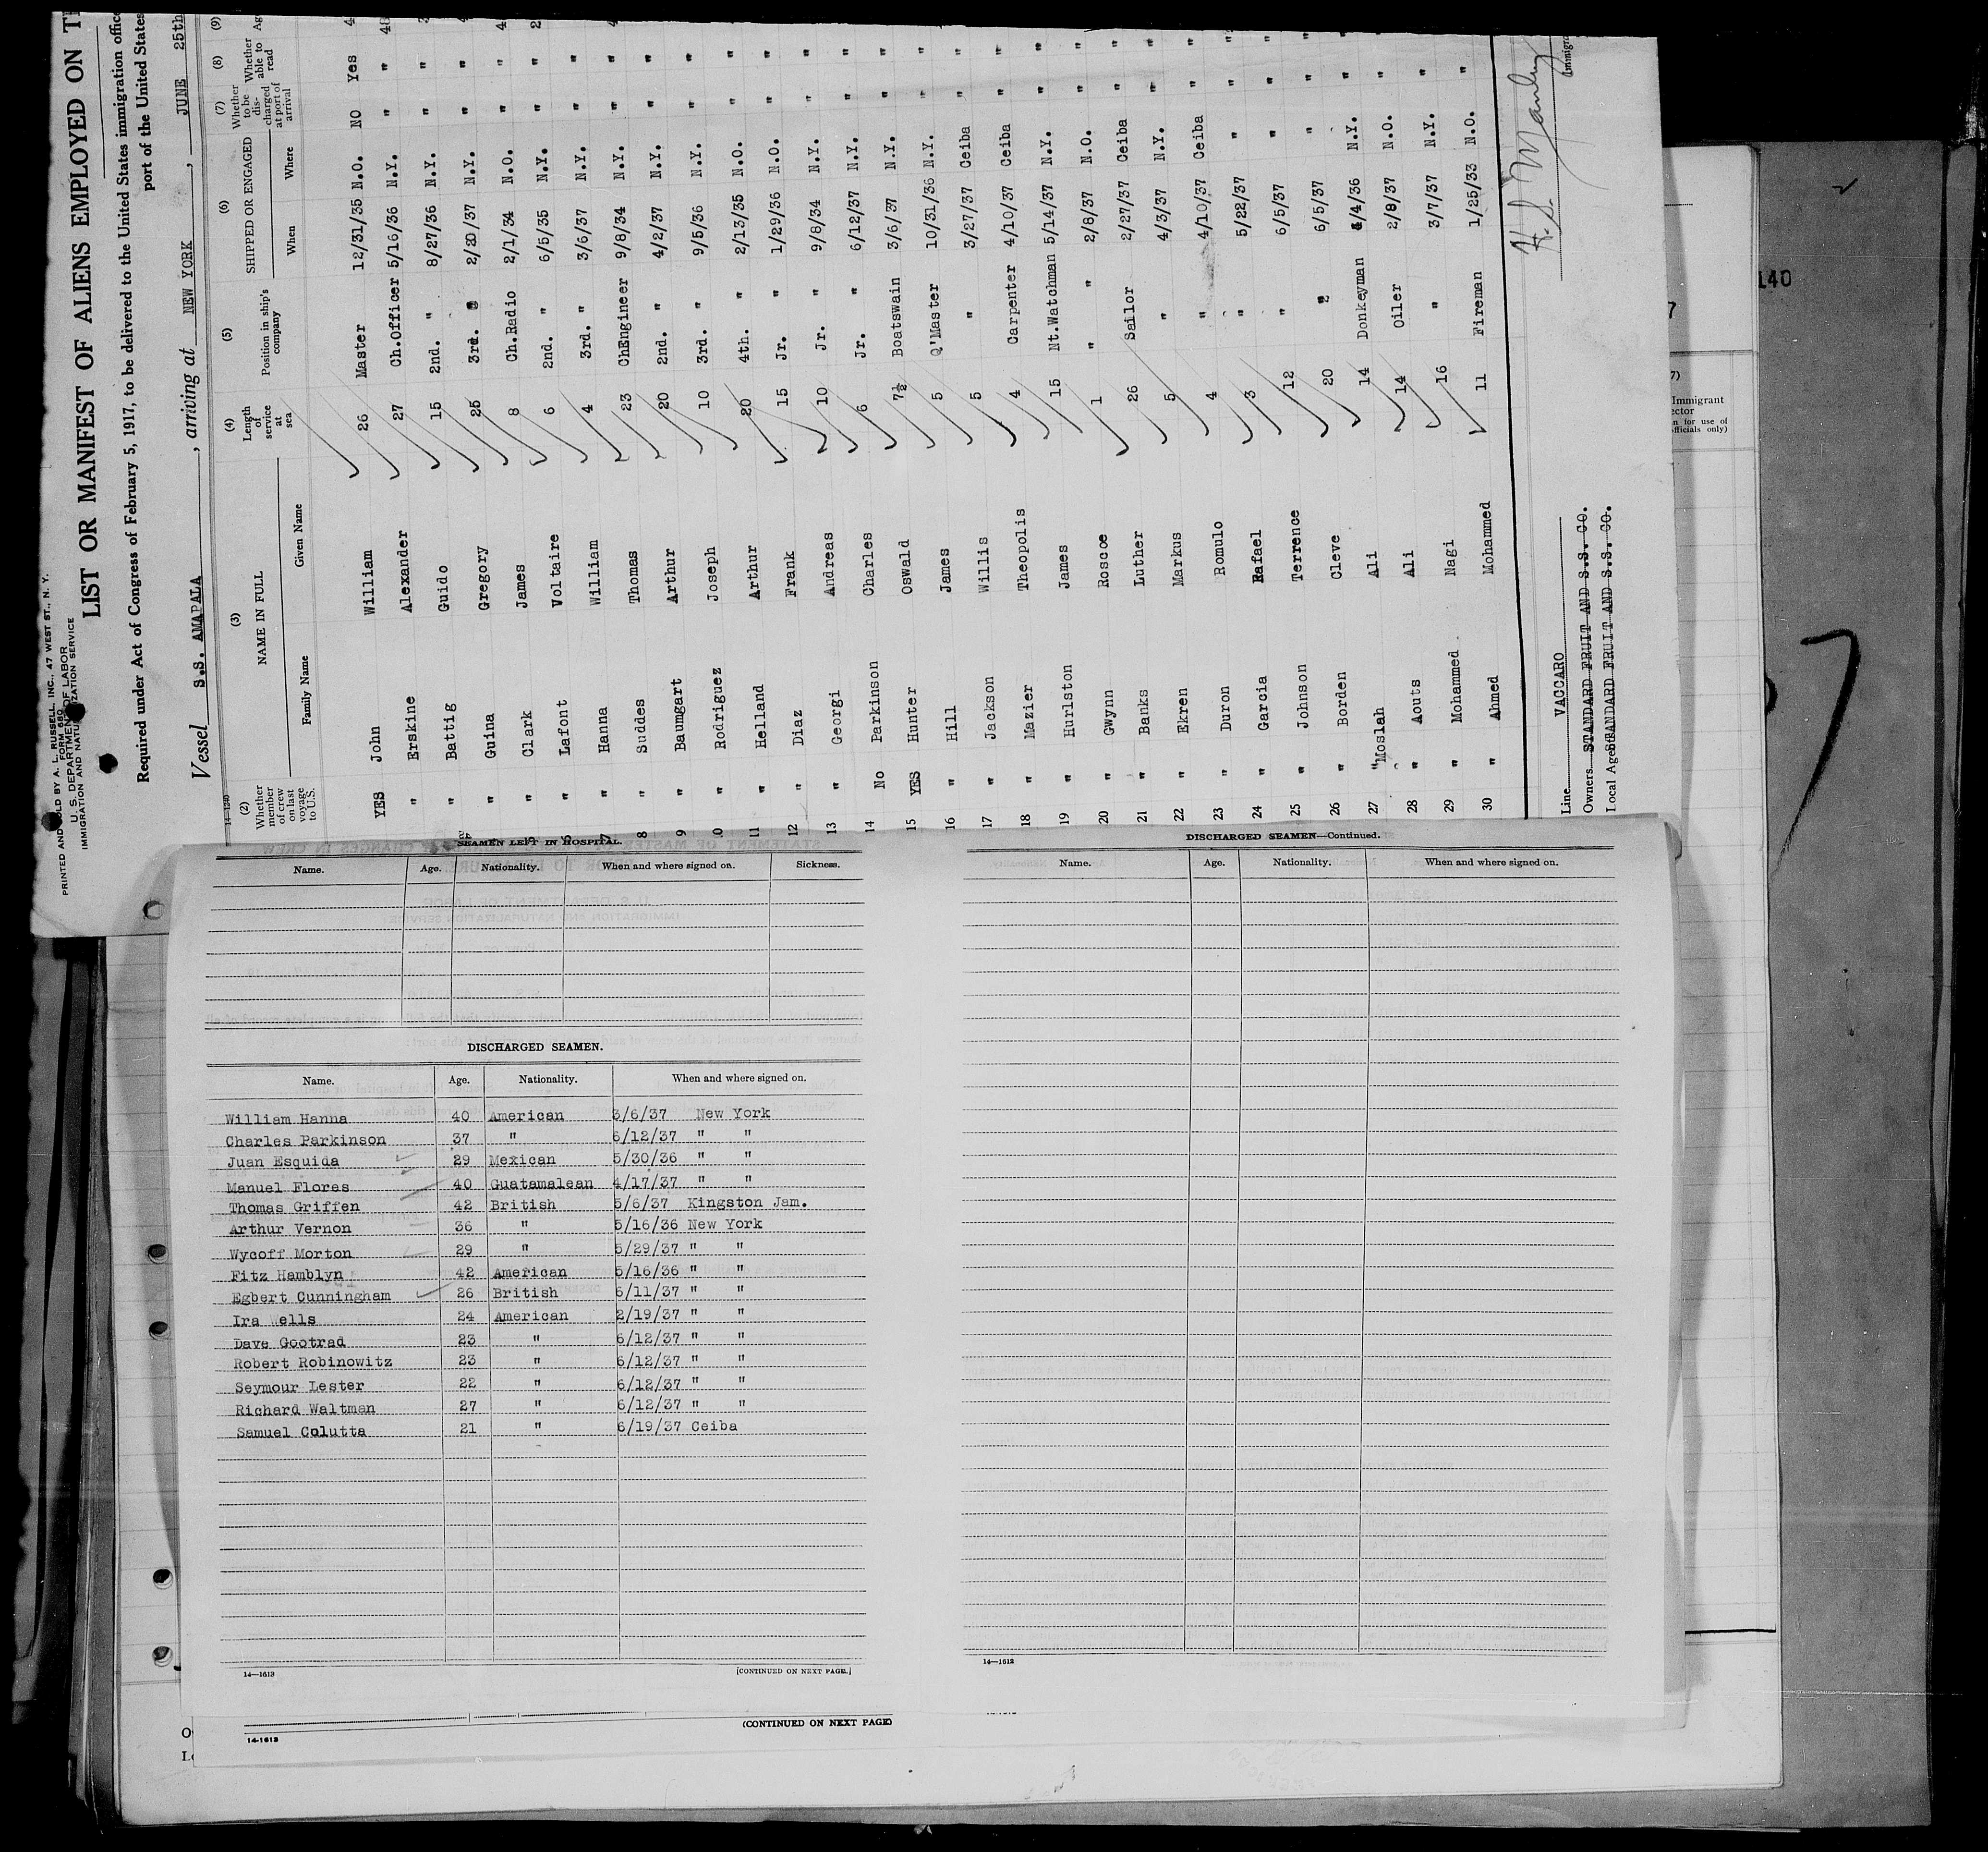 PRINTED AND SOLD BY A. L. RUSSELL, INC., 47 WEST ST., N. Y.
FORM 680
U. S. DEPARTMENT OF LABOR
IMMIGRATION AND NATURALIZATION SERVICE
LIST OR MANIFEST OF ALIENS EMPLOYED ON
Required under Act of Congress of February 5, 1917, to be delivered to the United States immigration
port of the United States
Vessel S.S. AMAPALA, arriving at NEW YORK, JUNE 25th
14-1240
(2) Whether member of crew on last voyage to U.S. (3) NAME IN FULL (4) Length of service at sea (5) Position in ship's company (6) SHIPPED OR ENGAGED (7) Whether to be discharged at port of arrival (8) Whether able to read (9)
Family Name Given Name When Where
YES John William 26 Master 12/31/35 N.O. NO Yes
" Erskine Alexander 27 Ch.Officer 5/16/36 N.Y. " "
" Battig Guido 15 2nd. " 8/27/36 N.Y. " "
" Guina Gregory 25 3rd. " 2/20/37 N.Y. " "
" Clark James 8 Ch.Radio 2/1/34 N.O. " "
" Lafont Voltaire 6 2nd. " 6/5/35 N.Y. " "
7 " Hanna William 4 3rd. " 3/6/37 N.Y. " "
8 " Suddes Thomas 23 ChEngineer 9/8/34 N.Y. " "
9 " Baumgart Arthur 20 2nd. " 4/2/37 N.Y. " "
10 " Rodriguez Joseph 10 3rd. " 9/5/36 N.Y. " "
11 " Helland Arthur 20 4th. " 2/13/35 N.O. " "
12 " Diaz Frank 15 Jr. " 1/29/36 N.O. " "
13 " Georgi Andreas 10 Jr. " 9/8/34 N.Y. " "
14 No Parkinson Charles 6 Jr. " 6/12/37 N.Y. " "
15 YES Hunter Oswald 7½ Boatswain 3/6/37 N.Y. " "
16 " Hill James 5 Q'Master 10/31/36 N.Y. " "
17 " Jackson Willis 5 " 3/27/37 Ceiba " "
18 " Mazier Theopolis 4 Carpenter 4/10/37 Ceiba " "
19 " Hurlston James 15 Nt.Watchman 5/14/37 N.Y. " "
20 " Gwynn Roscoe 1 " " 2/8/37 N.O. " "
21 " Banks Luther 26 Sailor 2/27/37 Ceiba " "
22 " Ekren Markus 5 " 4/3/37 N.Y. " "
23 " Duron Romulo 4 " 4/10/37 Ceiba " "
24 " Garcia Rafael 3 " 5/22/37 " " "
25 " Johnson Terrence 12 " 6/5/37 " " "
26 " Borden Cleve 20 " 6/5/37 " " "
27 " Moslah Ali 14 Donkeyman 4/4/36 N.Y. " "
28 " Aouts Ali 14 Oiler 2/8/37 N.O. " "
29 " Mohammed Nagi 16 " 3/7/37 N.Y. " "
30 " Ahmed Mohammed 11 Fireman 1/25/33 N.O. "
Line VACCARO
Owners STANDARD FRUIT AND S.S. CO.
Local Agents STANDARD FRUIT AND S.S. CO.
H. S. Manley
140
7
Immigrant
(CONTINUED ON NEXT PAGE)
14-1613
SEAMEN LEFT IN HOSPITAL.
Name. Age. Nationality. When and where signed on. Sickness.
DISCHARGED SEAMEN.
Name. Age. Nationality. When and where signed on.
William Hanna 40 American 3/6/37 New York
Charles Parkinson 37 " 6/12/37 " "
Juan Esquida 29 Mexican 5/30/36 " "
Manuel Flores 40 Guatamalean 4/17/37 " "
Thomas Griffen 42 British 5/6/37 Kingston Jam.
Arthur Vernon 36 " 5/16/36 New York
Wycoff Morton 29 " 5/29/37 " "
Fitz Hamblyn 42 American 5/16/36 " "
Egbert Cunningham 26 British 6/11/37 " "
Ira Wells 24 American 2/19/37 " "
Dave Gootrad 23 " 6/12/37 " "
Robert Robinowitz 23 " 6/12/37 " "
Seymour Lester 22 " 6/12/37 " "
Richard Waltman 27 " 6/12/37 " "
Samuel Colutta 21 " 6/19/37 Ceiba
14—1613 [CONTINUED ON NEXT PAGE.]
DISCHARGED SEAMEN—Continued.
Name. Age. Nationality. When and where signed on.
14—1612